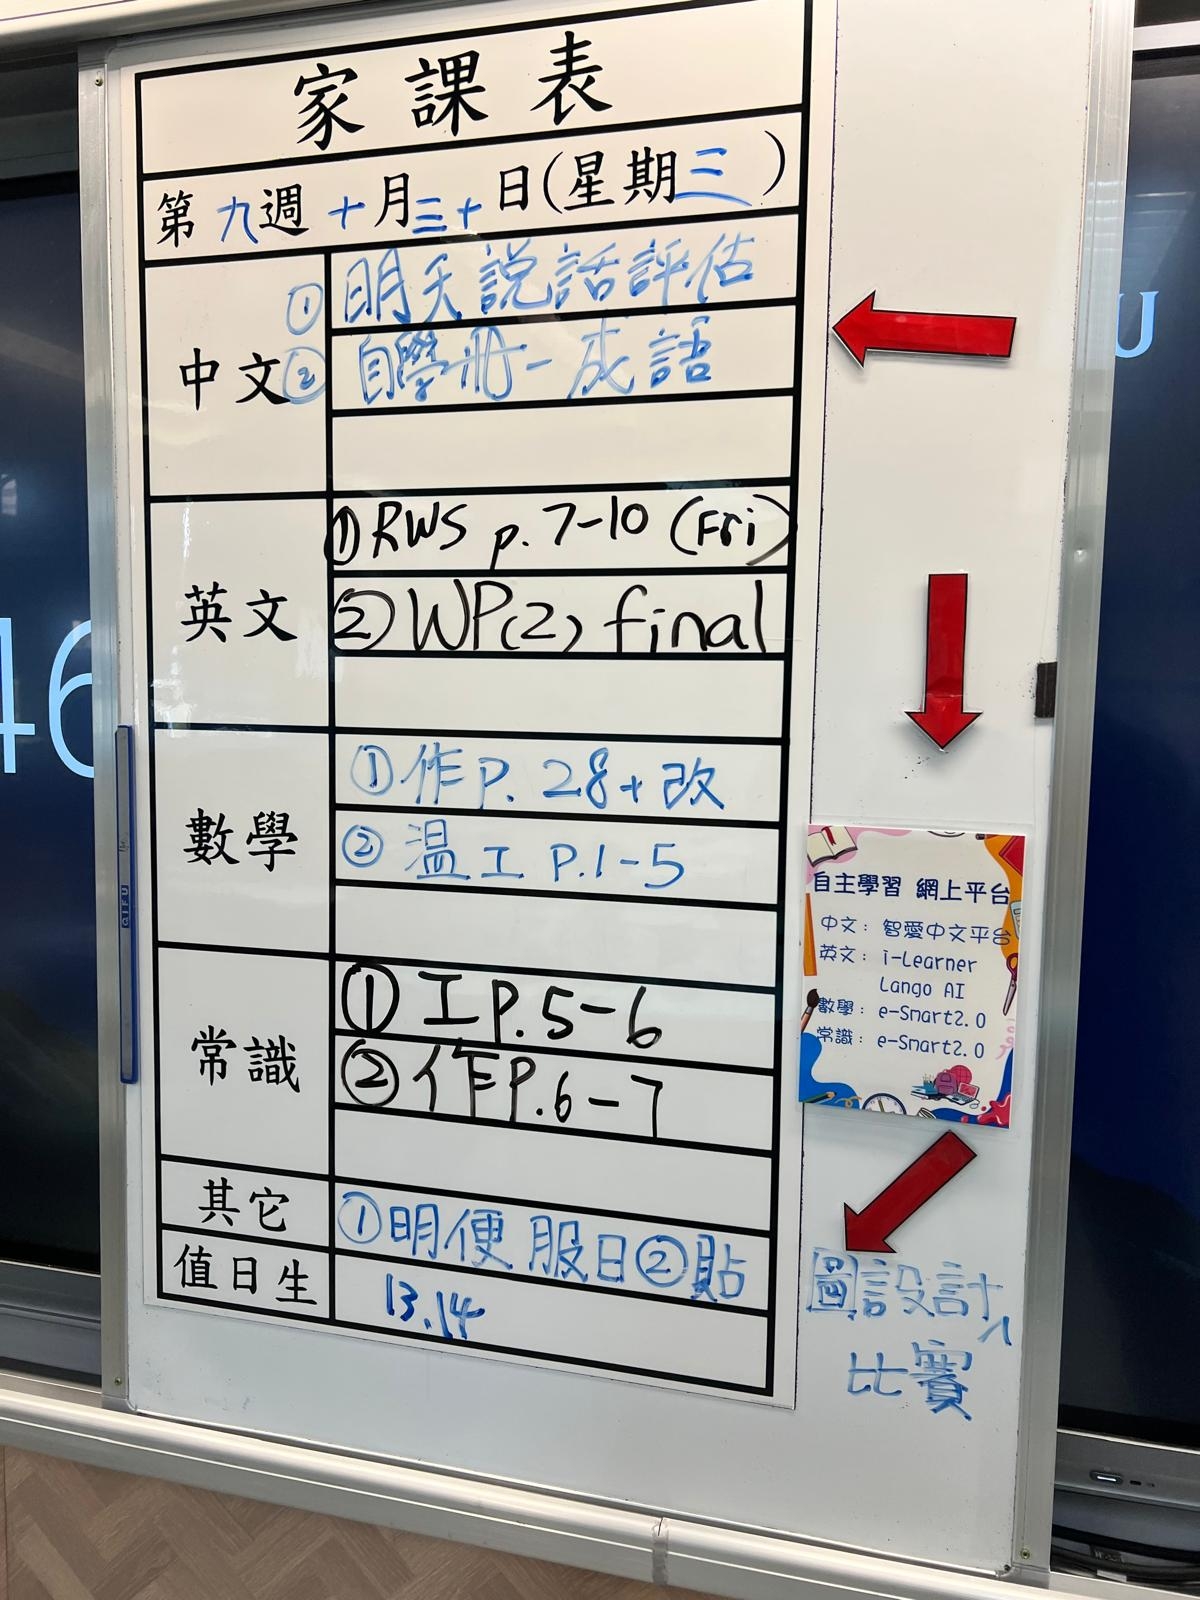 家課表
第九週 十月三十日(星期三)
中文
① 明天說話評估
② 自學冊-成語
英文
① RWS p.7-10 (Fri)
② WP(2) final
數學
① 作P.28+改
② 溫工 P.1-5
常識
① 工P.5-6
② 作P.6-7
其它
① 明便服日 ② 貼
圖設計
比賽
值日生
13.14
自主學習 網上平台
中文: 智愛中文平台
英文: i-Learner
Lango AI
數學: e-Smart2.0
常識: e-Smart2.0
46
U